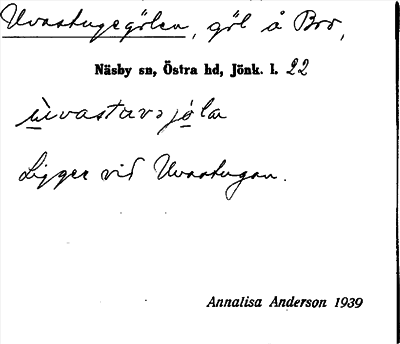 Uvastugegölen, göl å Bro,
Näsby sn, Östra hd, Jönk. l. 22
ùvastuvɔjöla
Ligger vid Uvastugan.
Annalisa Anderson 1939